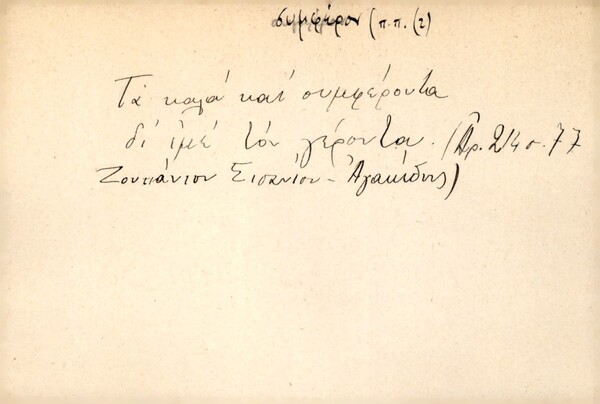 συμφέρον (π.π. (2)
Τά καλά καί συμφέροντα
δι' ἐμέ τόν γέροντα. (Ἀρ. 214 σ. 77
Ζουπάνιον Σισανίου - Ἀγακίδης)